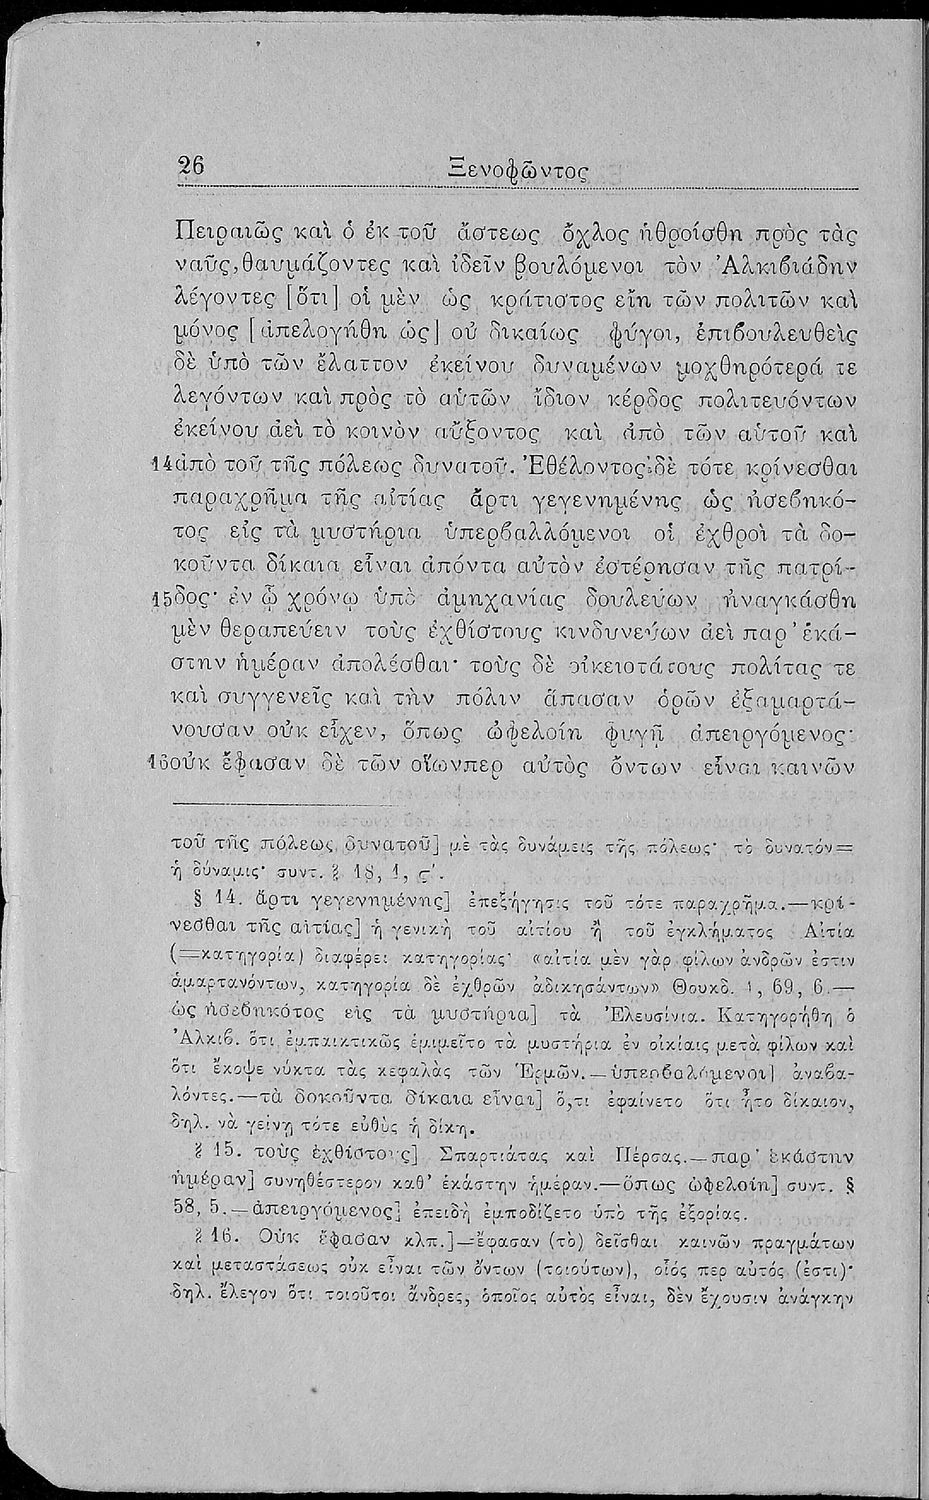 26 Ξενοφῶντος
Πειραιῶς καὶ ὁ ἐκ τοῦ ἄστεως ὄχλος ἡθροίσθη πρὸς τὰς
ναῦς, θαυμάζοντες καὶ ἰδεῖν βουλόμενοι τὸν Ἀλκιβιάδην
λέγοντες [ὅτι] οἱ μὲν ὡς κράτιστος εἴη τῶν πολιτῶν καὶ
μόνος [ἀπελογήθη ὡς] οὐ δικαίως φύγοι, ἐπιβουλευθεὶς
δὲ ὑπὸ τῶν ἔλαττον ἐκείνου δυναμένων μοχθηρότερά τε
λεγόντων καὶ πρὸς τὸ αὑτῶν ἴδιον κέρδος πολιτευόντων
ἐκείνου ἀεὶ τὸ κοινὸν αὔξοντος καὶ ἀπὸ τῶν αὑτοῦ καὶ
14 ἀπὸ τοῦ τῆς πόλεως δυνατοῦ. Ἐθέλοντος δὲ τότε κρίνεσθαι
παραχρῆμα τῆς αἰτίας ἄρτι γεγενημένης ὡς ἠσεβηκό-
τος εἰς τὰ μυστήρια ὑπερβαλλόμενοι οἱ ἐχθροὶ τὰ δο-
κοῦντα δίκαια εἶναι ἀπόντα αὐτὸν ἐστέρησαν τῆς πατρί-
15 δος· ἐν ᾧ χρόνῳ ὑπὸ ἀμηχανίας δουλεύων ἠναγκάσθη
μὲν θεραπεύειν τοὺς ἐχθίστους κινδυνεύων ἀεὶ παρ' ἑκά-
στην ἡμέραν ἀπολέσθαι· τοὺς δὲ οἰκειοτάτους πολίτας τε
καὶ συγγενεῖς καὶ τὴν πόλιν ἅπασαν ὁρῶν ἐξαμαρτά-
νουσαν οὐκ εἶχεν, ὅπως ὠφελοίη φυγῇ ἀπειργόμενος·
16 οὐκ ἔφασαν δὲ τῶν οἵωνπερ αὐτὸς ὄντων εἶναι καινῶν
τοῦ τῆς πόλεως δυνατοῦ] μὲ τὰς δυνάμεις τῆς πόλεως· τὸ δυνατόν=
ἡ δύναμις· συντ. § 18, 1, ς'.
§ 14. ἄρτι γεγενημένης] ἐπεξήγησις τοῦ τότε παραχρῆμα.—κρί-
νεσθαι τῆς αἰτίας] ἡ γενικὴ τοῦ αἰτίου ἢ τοῦ ἐγκλήματος Αἰτία
(=κατηγορία) διαφέρει κατηγορίας· «αἰτία μὲν γὰρ φίλων ἀνδρῶν ἐστιν
ἁμαρτανόντων, κατηγορία δὲ ἐχθρῶν ἀδικησάντων» Θουκδ. 1, 69, 6.—
ὡς ἠσεβηκότος εἰς τὰ μυστήρια] τὰ Ἐλευσίνια. Κατηγορήθη ὁ
Ἀλκιβ. ὅτι ἐμπαικτικῶς ἐμιμεῖτο τὰ μυστήρια ἐν οἰκίαις μετὰ φίλων καὶ
ὅτι ἔκοψε νύκτα τὰς κεφαλὰς τῶν Ἑρμῶν.—ὑπερβαλλόμενοι] ἀναβα-
λόντες.—τὰ δοκοῦντα δίκαια εἶναι] ὅ,τι ἐφαίνετο ὅτι ἦτο δίκαιον,
δηλ. νὰ γείνῃ τότε εὐθὺς ἡ δίκη.
§ 15. τοὺς ἐχθίστους] Σπαρτιάτας καὶ Πέρσας.—παρ' ἑκάστην
ἡμέραν] συνηθέστερον καθ' ἑκάστην ἡμέραν.—ὅπως ὠφελοίη] συντ. §
58, 5.—ἀπειργόμενος] ἐπειδὴ ἐμποδίζετο ὑπὸ τῆς ἐξορίας.
§ 16. Οὐκ ἔφασαν κλπ.]=ἔφασαν (τὸ) δεῖσθαι καινῶν πραγμάτων
καὶ μεταστάσεως οὐκ εἶναι τῶν ὄντων (τοιούτων), οἷός περ αὐτός (ἐστι)·
δηλ. ἔλεγον ὅτι τοιοῦτοι ἄνδρες, ὁποῖος αὐτὸς εἶναι, δὲν ἔχουσιν ἀνάγκην